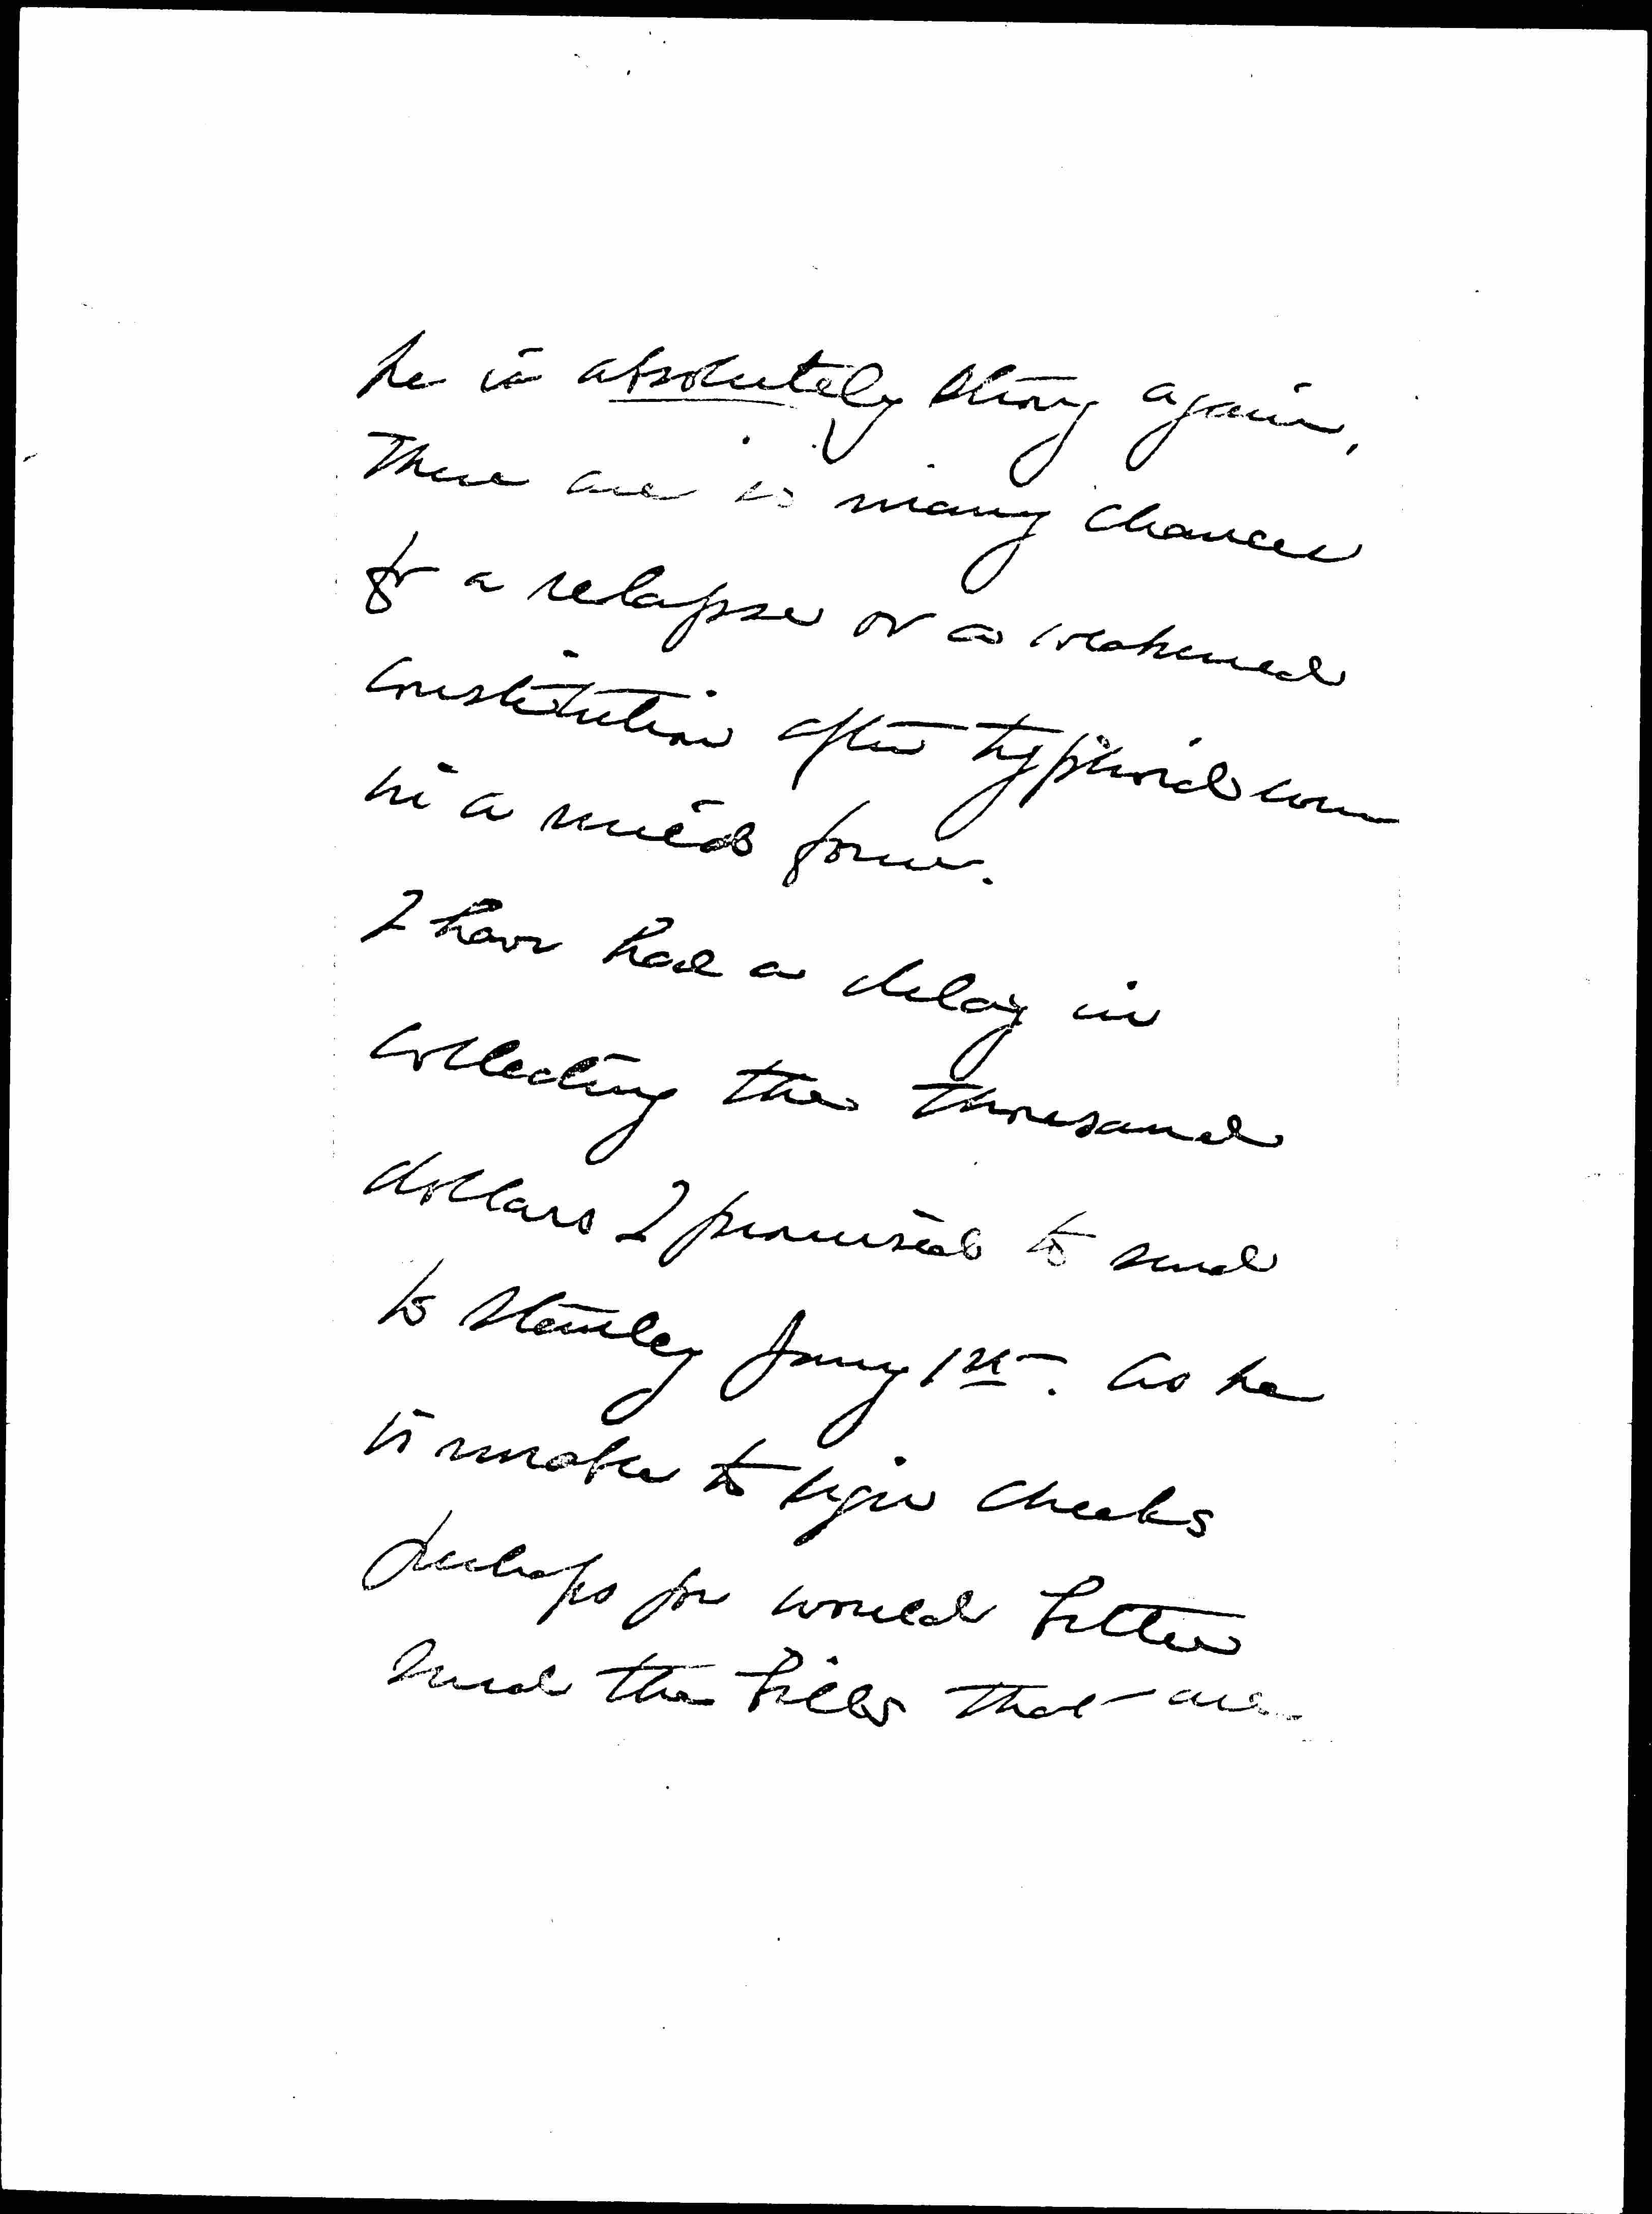 he is absolutely strong again.
There are so many chances
for a relapse or a weakened
constitution after typhoid even
in a mild form.
I have had a delay in
collecting the thousand
dollars I promised to send
to Stanley Jany 1st. As he
is unable to sign checks
perhaps you would better
send the bills that are